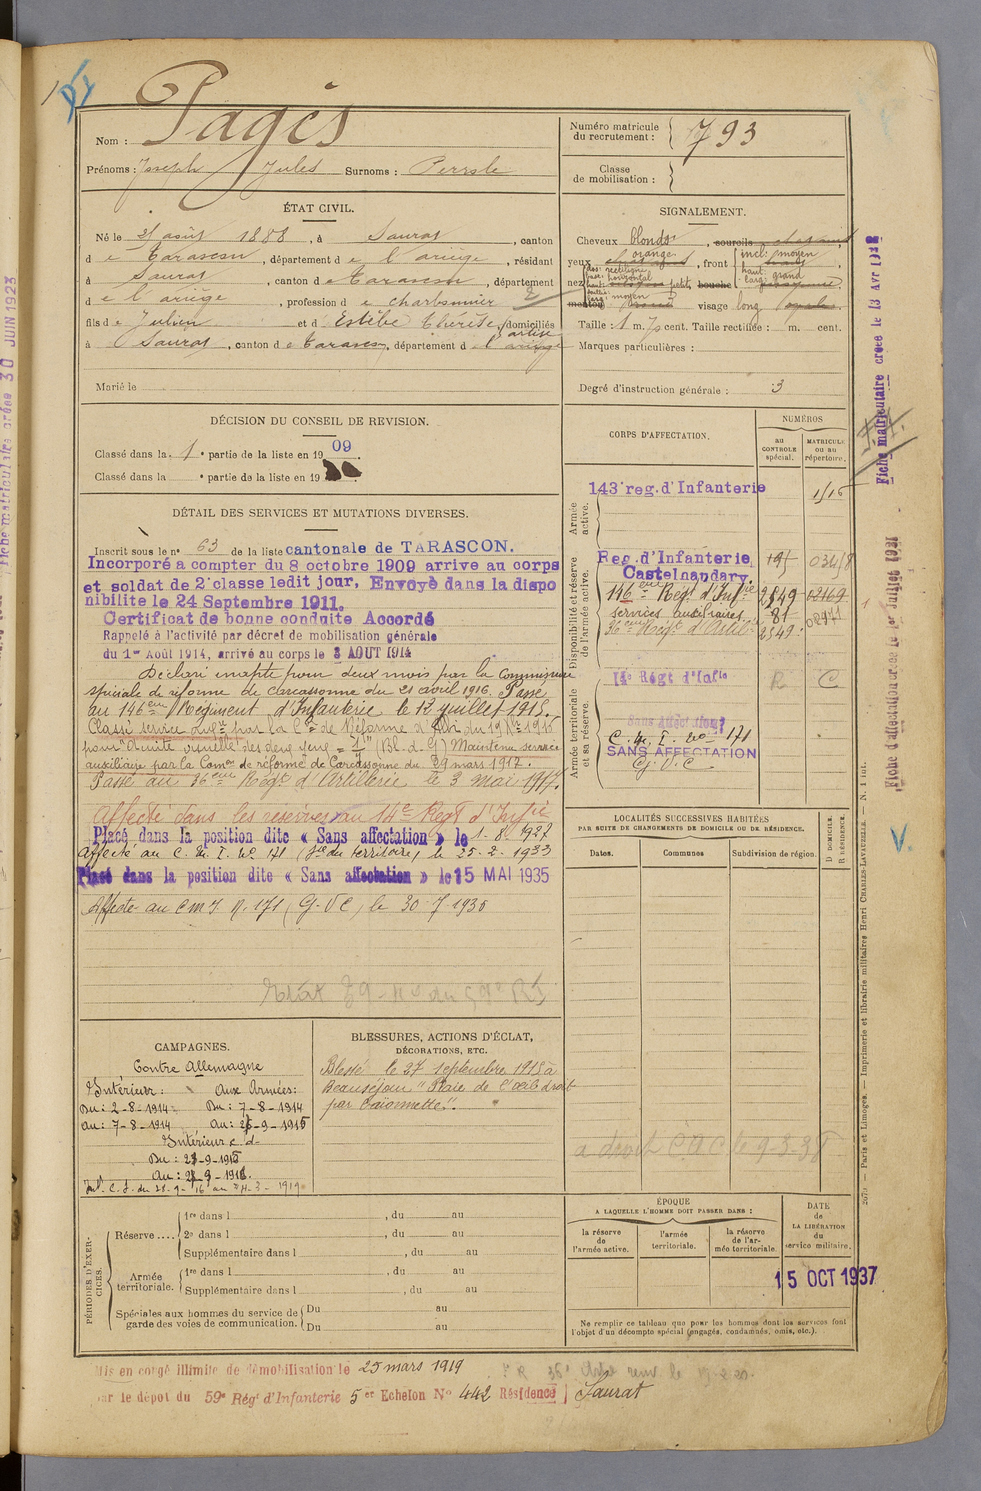 Pagès
Nom :
Prénoms : Joseph Jules Surnoms : Perrole
Numéro matricule du recrutement : 793
Classe de mobilisation :
ÉTAT CIVIL.
Né le 21 août 1888, à Saurat, canton
de Tarascon, département de l'ariège, résidant
à Saurat, canton de Tarascon, département
de l'ariège, profession de charbonnier
fils de Julien et de Estèbe Thérèse, domiciliés
à Saurat, canton de Tarascon, département de l'ariège
Marié le
SIGNALEMENT.
Cheveux blonds, sourcils
yeux orange, front incl: moyen
haut:
larg: grand
nez dos: rectiligne
base: horizontal
haut: petit, bouche
larg: moyen
menton visage long
Taille : 1 m. 70 cent. Taille rectifiée : m. cent.
Marques particulières :
Degré d'instruction générale : 3
DÉCISION DU CONSEIL DE REVISION.
Classé dans la 1e partie de la liste en 1909
Classé dans la e partie de la liste en 19
DÉTAIL DES SERVICES ET MUTATIONS DIVERSES.
Inscrit sous le n° 63 de la liste cantonale de TARASCON.
Incorporé a compter du 8 octobre 1909 arrive au corps
et soldat de 2e classe ledit jour. Envoyé dans la dispo
nibilite le 24 Septembre 1911.
Certificat de bonne conduite Accordé
Rappelé à l'activité par décret de mobilisation générale
du 1er Août 1914, arrivé au corps le 3 AOUT 1914
Déclaré inapte pour deux mois par la Commission
spéciale de réforme de Carcassonne du 21 avril 1916. Passé
au 146eme Régiment d'Infanterie le 12 juillet 1915.
Classé service auxre par la Con de Réforme d'Albi du 19 1916
pour "Acuité visuelle des deux yeux = (Bl. d. G) Maintenu service
auxiliaire par la Comon de réforme de Carcassonne du 29 mars 1917.
Passé au 36eme Régt d'Artillerie le 3 mai 1917.
Affecté dans les réserves au 14e Régt d'Infie
Placé dans la position dite « Sans affectation » le 1-8-1927
Affecté au C. M. I. No 171 (Sce du territoire) le 25-2-1933
Placé dans la position dite « Sans affectation » le 15 MAI 1935
Affecté au CMI N. 171 (G.V.C) le 30 7 1935
CORPS D'AFFECTATION.
NUMÉROS
au CONTROLE spécial.
MATRICULE ou au répertoire.
Armée active.
143e reg. d'Infanterie
Disponibilité et réserve de l'armée active.
Reg. d'Infanterie
Castelnaudary.
146eme Régt d'Infie 2549 02169
services auxiliaires 81
36eme Régt d'Artie 2549
Armée territoriale et sa réserve.
14e Régt d'Infie R C
Sans Affectation
C. M. I. No 171
SANS AFFECTATION
G. V. C
LOCALITÉS SUCCESSIVES HABITÉES
PAR SUITE DE CHANGEMENTS DE DOMICILE OU DE RÉSIDENCE.
Dates. Communes Subdivision de région.
D DOMICILE. R RÉSIDENCE.
CAMPAGNES.
Contre Allemagne
Intérieur : Aux Armées :
Du : 2-8-1914 Du : 7-8-1914
au : 7-8-1914 au : 26-9-1915
Intérieur c. d.
Du : 27-9-1915
Au : 21-9-1916.
Int. C. S. du 21-9-16 au 24-3-1919
BLESSURES, ACTIONS D'ÉCLAT,
DÉCORATIONS, ETC.
Blessé le 27 septembre 1915 à
Beauséjour "Plaie de l'œil droit
par baïonnette".
a droit C a C le 9-3-38
PÉRIODES D'EXERCICES.
Réserve....
1re dans l , du au
2e dans l , du au
Supplémentaire dans l , du au
Armée territoriale.
1re dans l , du au
Supplémentaire dans l , du au
Spéciales aux hommes du service de garde des voies de communication.
Du au
Du au
ÉPOQUE
A LAQUELLE L'HOMME DOIT PASSER DANS :
la réserve de l'armée active.
l'armée territoriale.
la réserve de l'armée territoriale.
DATE de LA LIBÉRATION du service militaire.
15 OCT 1937
Ne remplir ce tableau que pour les hommes dont les services font
l'objet d'un décompte spécial (engagés, condamnés, omis, etc.).
Mis en congé illimité de démobilisation le 25 mars 1919
par le dépot du 59e Régt d'Infanterie 5er Echelon No 442 Résidence Saurat
Fiche matriculaire créée le 13 Avr 1942
Fiche d'affectation créée le 1er Juillet 1931
Fiche matriculaire créée 30 JUIN 1923
Paris et Limoges. — Imprimerie et librairie militaires Henri CHARLES-LAVAUZELLE.